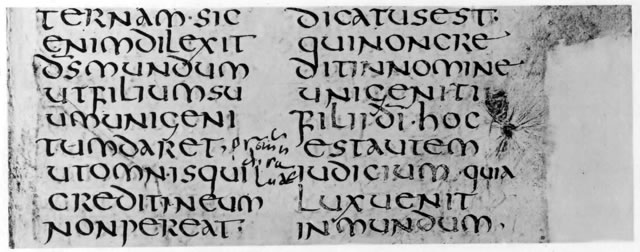 TERNAM·SIC
ENIMDILEXIT
D̅S̅MUNDUM
UTFILIUMSU
UMUNIGENI
TUMDARET·
UTOMNISQUI
CREDITINEUM
NONPEREAT·
DICATUSEST·
QUINONCRE
DITINNOMINE
UNIGENITI
FILIID̅I̅·HOC
ESTAUTEM
IUDICIUM·QUIA
LUXUENIT
INMUNDUM·